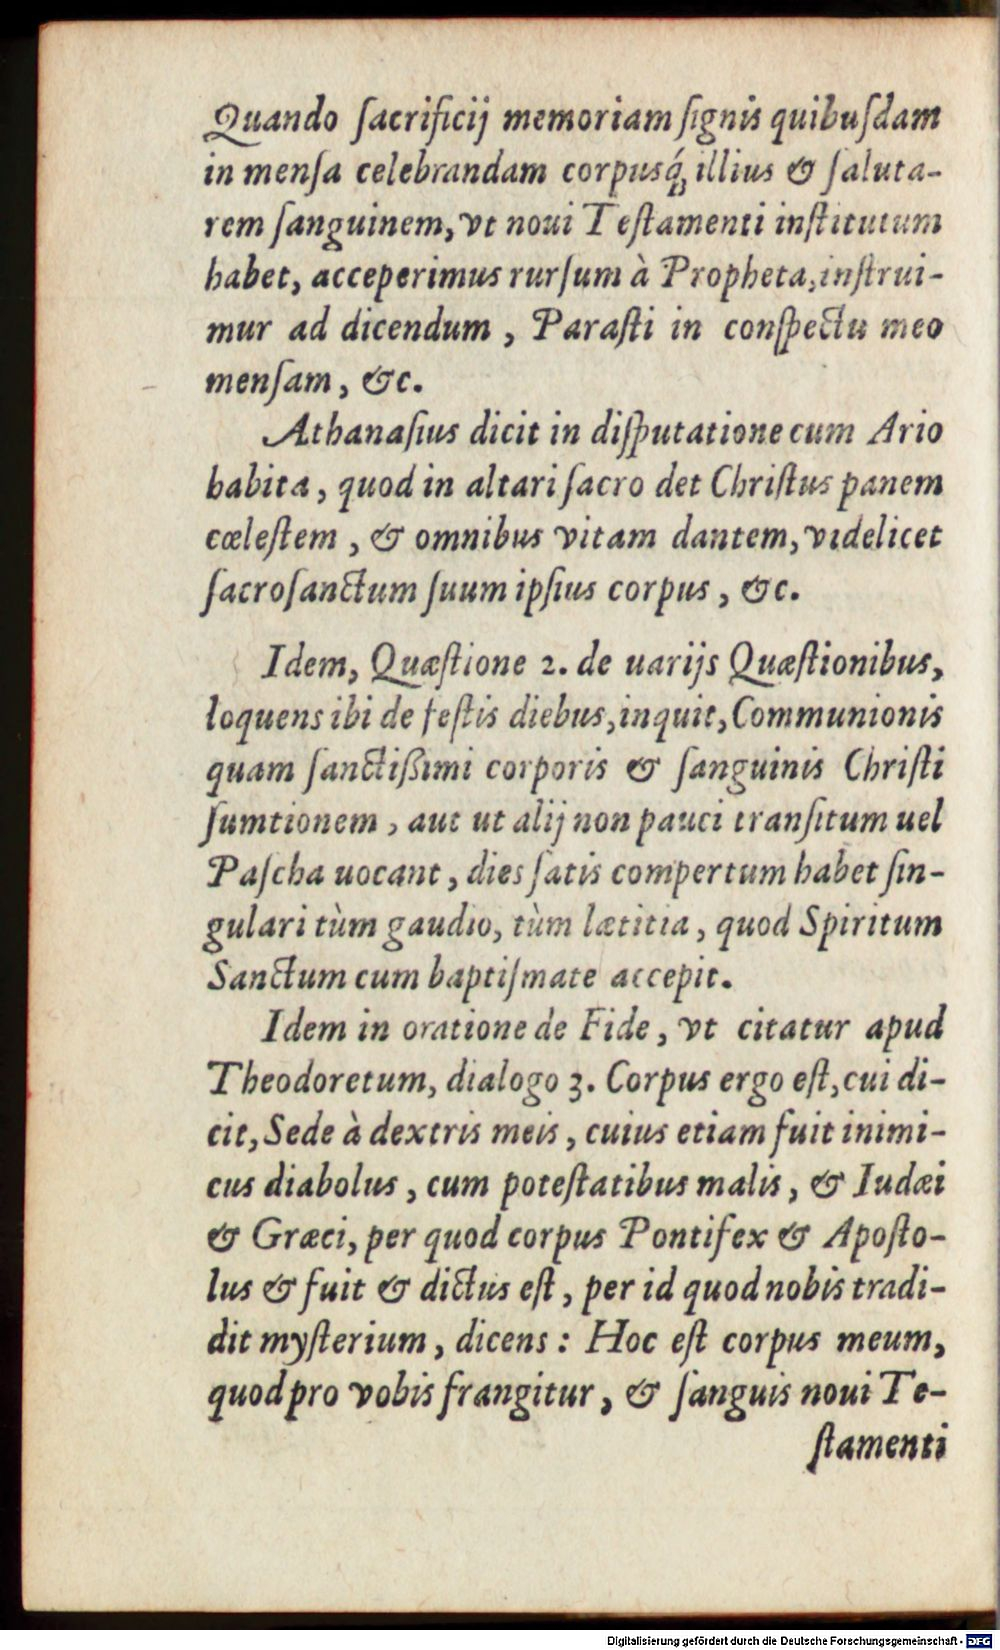 Quando ſacrificij memoriam ſignis quibuſdam
in menſa celebrandam corpusq́; illius & ſaluta-
rem ſanguinem, vt noui Teſtamenti inſtitutum
habet, acceperimus rurſum à Propheta, inſtrui-
mur ad dicendum, Paraſti in conſpectu meo
menſam, &c.
Athanaſius dicit in diſputatione cum Ario
habita, quod in altari ſacro det Chriſtus panem
cœleſtem, & omnibus vitam dantem, videlicet
ſacroſanctum ſuum ipſius corpus, &c.
Idem, Quæſtione 2. de uarijs Quæſtionibus,
loquens ibi de feſtis diebus, inquit, Communionis
quam ſanctißimi corporis & ſanguinis Chriſti
ſumtionem, aut ut alij non pauci tranſitum uel
Paſcha uocant, dies ſatis compertum habet ſin-
gulari tùm gaudio, tùm lætitia, quod Spiritum
Sanctum cum baptiſmate accepit.
Idem in oratione de Fide, vt citatur apud
Theodoretum, dialogo 3. Corpus ergo eſt, cui di-
cit, Sede à dextris meis, cuius etiam fuit inimi-
cus diabolus, cum poteſtatibus malis, & Iudæi
& Græci, per quod corpus Pontifex & Apoſto-
lus & fuit & dictus eſt, per id quod nobis tradi-
dit myſterium, dicens: Hoc eſt corpus meum,
quod pro vobis frangitur, & ſanguis noui Te-
ſtamenti
Digitalisierung gefördert durch die Deutsche Forschungsgemeinschaft - DFG